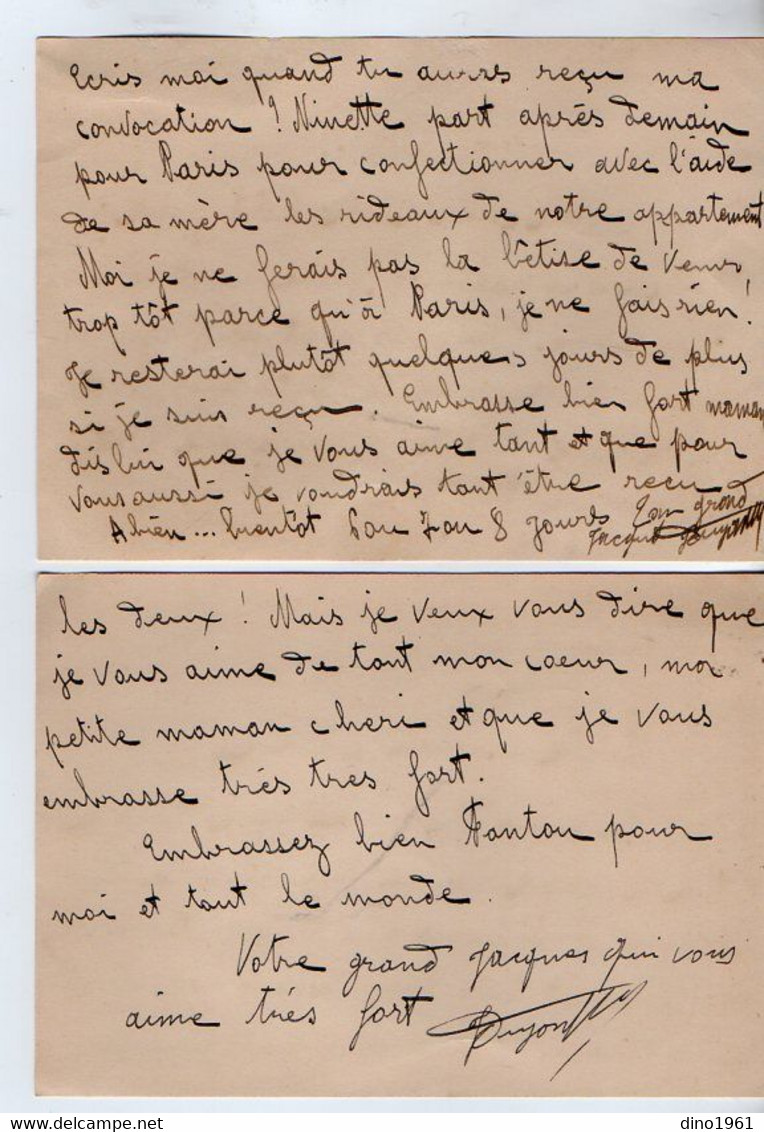 Ecris moi quand tu auras reçu ma
convocation ! Ninette part après demain
pour Paris pour confectionner avec l'aide
de sa mère les rideaux de notre appartement
Moi je ne ferais pas la bêtise de venir
trop tôt parce qu'à Paris, je ne fais rien !
Je resterai plutôt quelques jours de plus
si je suis reçu. Embrasse bien fort maman
dis lui que je vous aime tant et que pour
vous aussi je voudrais tant être reçu
A bien... bientôt 6 ou 7 ou 8 jours Ton grand
Jacques
les deux ! Mais je veux vous dire que
je vous aime de tout mon coeur, ma
petite maman cheri et que je vous
embrasse très tres fort.
Embrassez bien Tonton pour
moi et tout le monde.
Votre grand Jacques qui vous
aime très fort
delcampe.net
dino1961